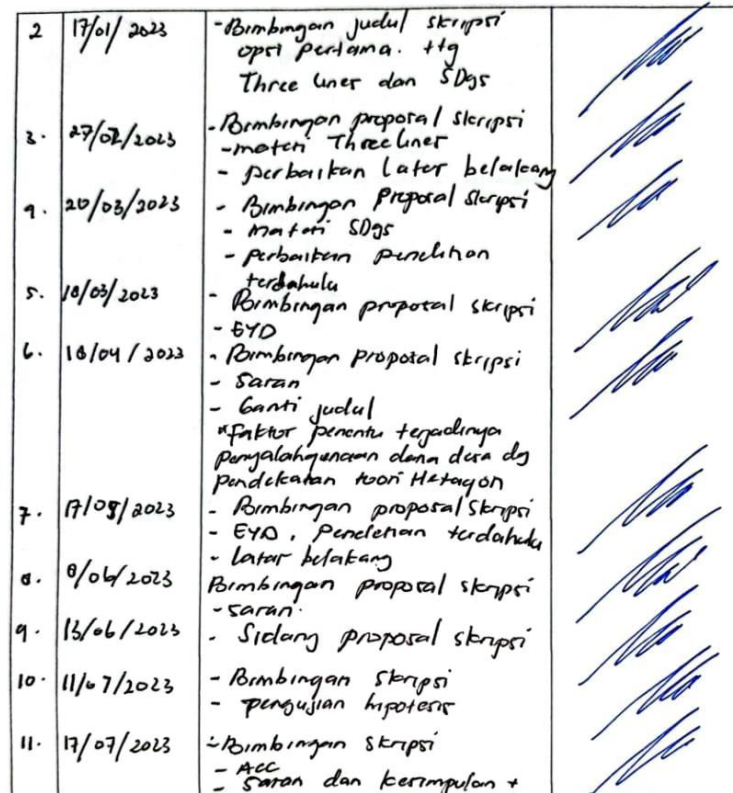 2 17/01/2023 - Bimbingan judul skripsi
opsi pertama. ttg
Three liner dan SDgs
3. 27/02/2023 - Bimbingan proposal skripsi
- materi Three liner
- perbaikan latar belakang
4. 20/03/2023 - Bimbingan proposal skripsi
- materi SDgs
- perbaikan penelitian
terdahulu
5. 18/03/2023 - Bimbingan proposal skripsi
- EYD
6. 18/04/2023 - Bimbingan proposal skripsi
- Saran
- Ganti judul
"Faktor penentu terjadinya
penyalahgunaan dana desa dg
pendekatan teori Hexagon
7. 17/05/2023 - Bimbingan proposal skripsi
- EYD, Penelitian terdahulu
- latar belakang
8. 8/06/2023 Bimbingan proposal skripsi
- saran.
9. 13/06/2023 - Sidang proposal skripsi
10. 11/07/2023 - Bimbingan skripsi
- pengujian hipotesis
11. 17/07/2023 - Bimbingan skripsi
- ACC
- Saran dan kesimpulan +